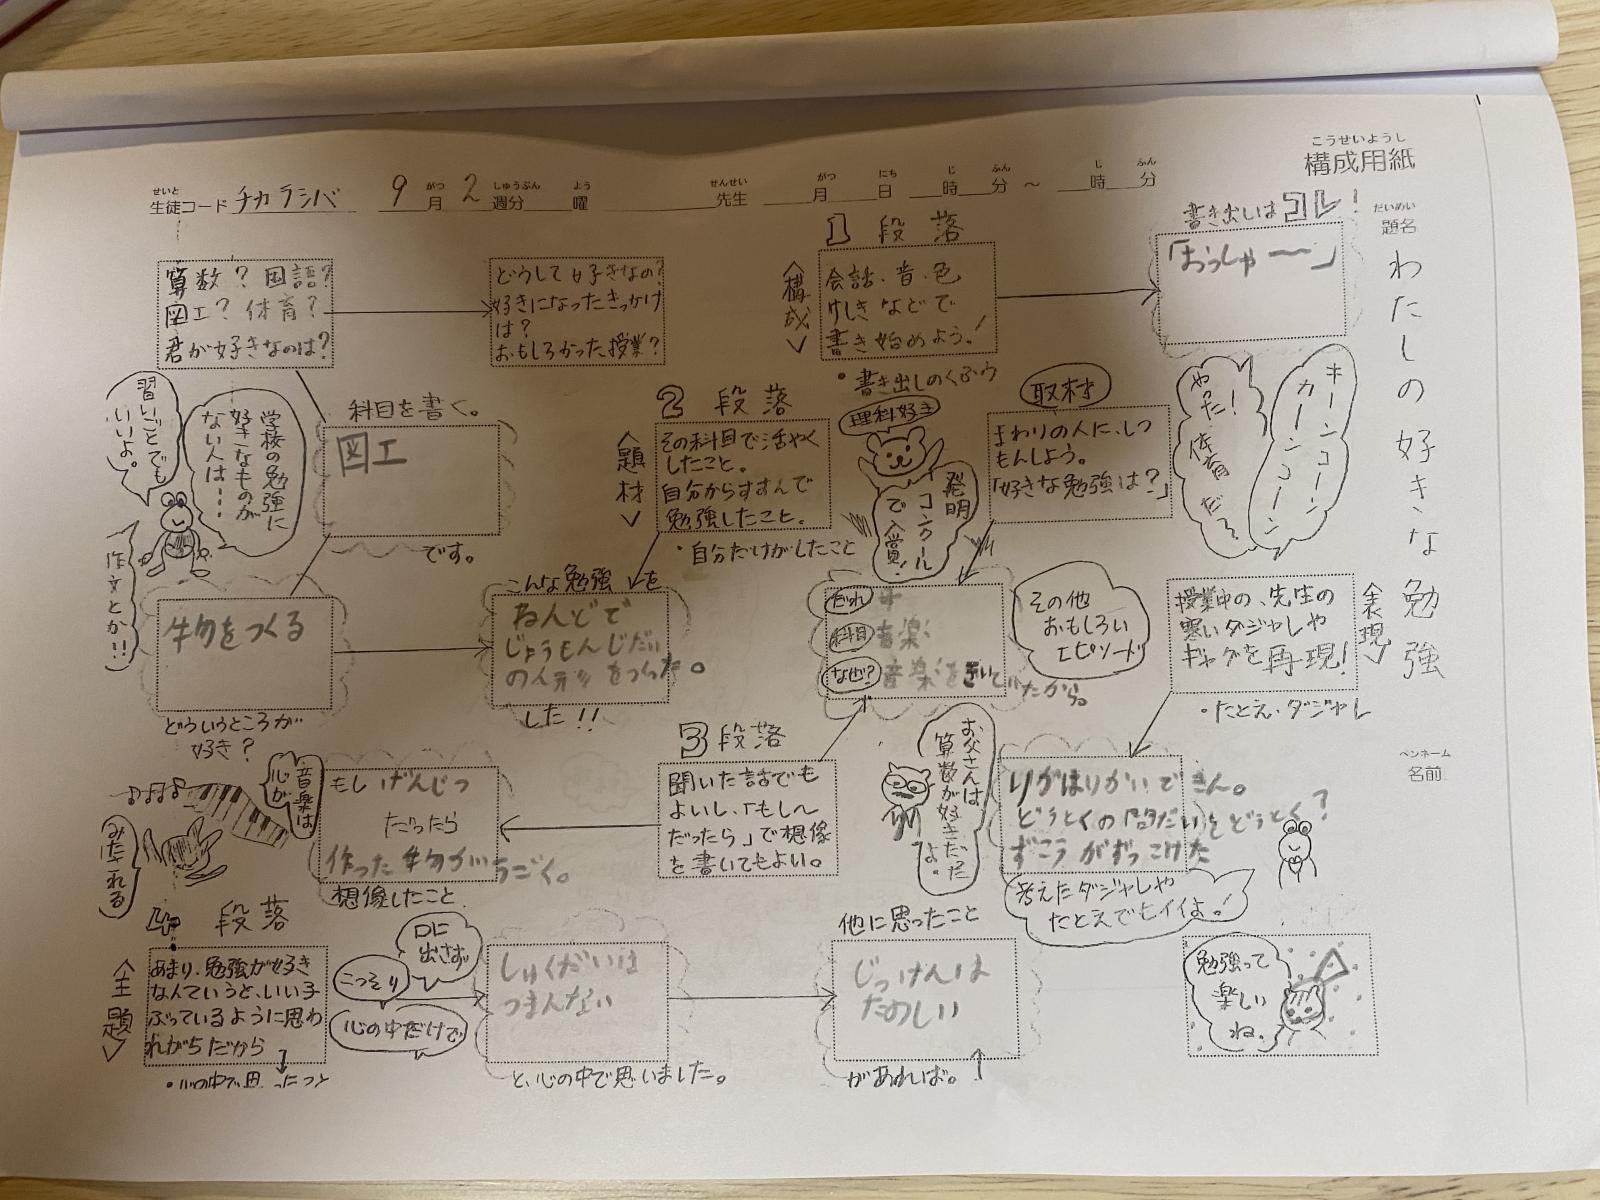 こうせいようし
構成用紙
せいと がつ しゅうぶん よう せんせい がつ にち じ ふん じ ふん
生徒コード チカラシバ 9月 2週分 曜 先生 月 日 時 分 ～ 時 分
だいめい
題名
わたしの好きな勉強
ペンネーム
名前
1 段落
〈構成〉
会話・音・色
けしきなどで
書き始めよう!
・書き出しのくふう
書き出しはコレ!
「おっしゃ〜〜」
キーンコーン
カーンコーン
やった!
体育だ〜
算数? 国語?
図工? 体育?
君が好きなのは?
どうして好きなの?
好きになったきっかけ
は?
おもしろかった授業?
科目を書く。
図工
です。
学校の勉強に
好きなものが
ない人は…
習いごとでも
いいよ。
作文とか!!
どういうところが
好き?
をつくる
2 段落
〈題材〉
その科目で活やく
したこと。
自分からすすんで
勉強したこと。
・自分だけがしたこと
こんな勉強を
ねんどで
じょうもんじだい
の人形をつくった。
した!!
取材
まわりの人に、しつ
もんしよう。
「好きな勉強は?」
理科好き
発明
コンクール
で入賞!
だれ
科目 音楽
なぜ? 音楽をきいていたから。
その他
おもしろい
エピソード
お父さんは
算数が好きだった
よ。
〈表現〉
授業中の、先生の
寒いダジャレや
ギャグを再現!
・たとえ・ダジャレ
りかはりかいできん。
どうとくの問だいをどうとく?
ずこうがずっこけた
考えたダジャレや
たとえでもイイよ!
3 段落
聞いた話でも
よいし、「もし〜
だったら」で想像
を書いてもよい。
もしげんじつ
だったら
作った
うごく。
想像したこと
音楽は
心が
みたされる
4 段落
〈主題〉
あまり、勉強が好き
なんていうと、いい子
ぶっているように思わ
れがちだから
・心の中で思ったこと
口に
出さず
こっそり
心の中だけで
しゅくだいは
つまんない
と、心の中で思いました。
他に思ったこと
じっけんは
たのしい
があれば。
勉強って
楽しい
ね。